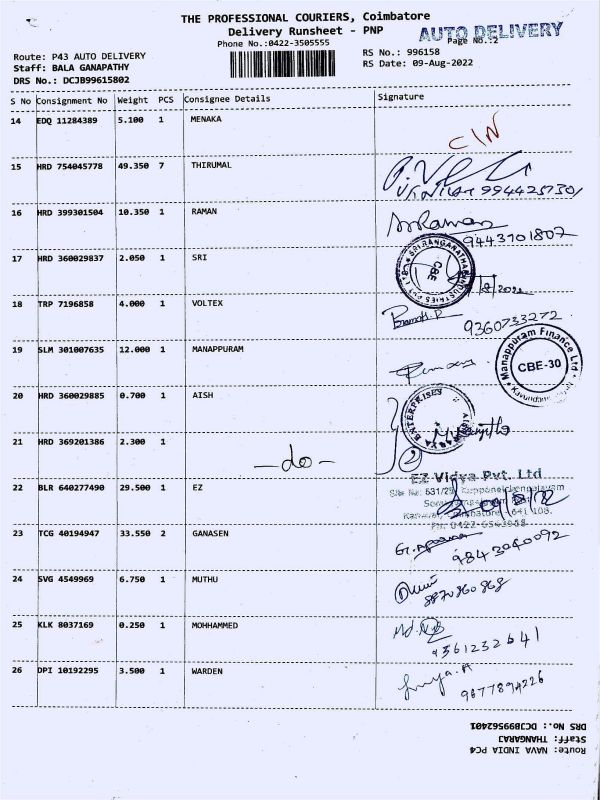 THE PROFESSIONAL COURIERS, Coimbatore
Delivery Runsheet - PNP
AUTO DELIVERY
Page No.:2
Phone No.:0422-3505555
Route: P43 AUTO DELIVERY
RS No.: 996158
Staff: BALA GANAPATHY
RS Date: 09-Aug-2022
DRS No.: DCJB99615802
S No Consignment No Weight PCS Consignee Details Signature
14 EDQ 11284389 5.100 1 MENAKA
C/N
15 HRD 754045778 49.350 7 THIRUMAL
16 HRD 399301504 10.350 1 RAMAN
Raman
9443701807
17 HRD 360029837 2.050 1 SRI
CBE
18 TRP 7196858 4.000 1 VOLTEX
9360733272
19 SLM 301007635 12.000 1 MANAPPURAM
Manappuram Finance Ltd
CBE-30
20 HRD 360029885 0.700 1 AISH
ENTERPRISES
21 HRD 369201386 2.300 1
- do -
22 BLR 640277490 29.500 1 EZ
EZ Vidya Pvt. Ltd
23 TCG 40194947 33.550 2 GANASEN
9843040092
24 SVG 4549969 6.750 1 MUTHU
8870860868
25 KLK 8037169 0.250 1 MOHHAMMED
9361232641
26 DPI 10192295 3.500 1 WARDEN
9677894226
DRS No.: DCJB99562401
Staff: THANGARAJ
Route: NAVA INDIA PC4